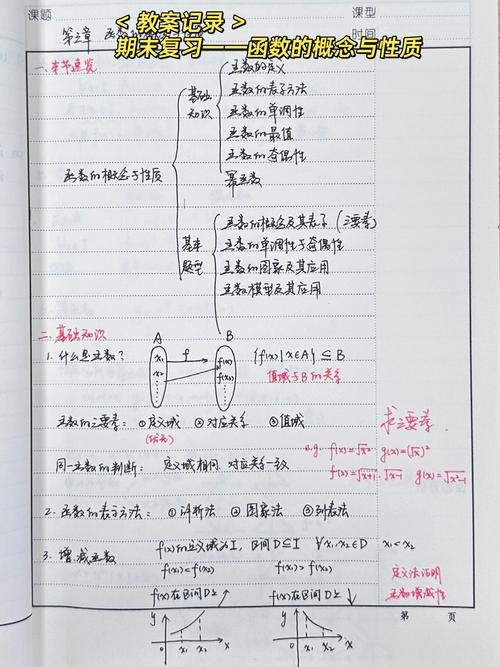 课题
课型
<教案记录>
第三章 函数
时间
期末复习——函数的概念与性质
一、本节速览
函数的概念与性质
基础知识
函数的定义
函数的表示方法
函数的单调性
函数的最值
函数的奇偶性
幂函数
基本题型
函数的概念及其表示(三要素)
函数的单调性与奇偶性
函数的图象及其应用
函数模型及其应用
二、基础知识
1. 什么是函数?
A f B
x₁ f(x₁)
x₂ f(x₂)
{f(x)|x∈A} ⊆ B
值域与B的关系
函数的三要素: ①定义域 ②对应关系 ③值域
(优先)
求三要素
同一函数的判断: 定义域相同, 对应关系一致
e.g. f(x)=√x² g(x)=(√x)²
f(x)=√x+1·√x-1 g(x)=√x²-1
2. 函数的表示方法: ①解析法 ②图象法 ③列表法
3. 增.减函数 f(x)的定义域为I, 区间D⊆I ∀x₁,x₂∈D x₁<x₂
f(x₁)<f(x₂) f(x₁)>f(x₂)
定义法证明
函数增减性
f(x)在区间D上↗ f(x)在区间D上↓
第 页
y x₁ x₂ x
y x₁ x₂ x